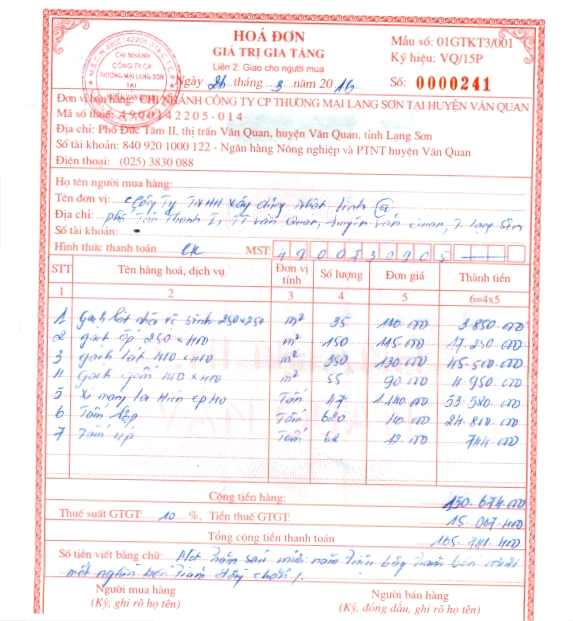 HOÁ ĐƠN
GIÁ TRỊ GIA TĂNG
Liên 2: Giao cho người mua
Mẫu số: 01GTKT3/001
Ký hiệu: VQ/15P
Ngày 26 tháng 3 năm 2016
Số: 0000241
CHI NHÁNH
CÔNG TY CP
THƯƠNG MẠI LẠNG SƠN
TẠI
Đơn vị bán hàng: CHI NHÁNH CÔNG TY CP THƯƠNG MẠI LẠNG SƠN TẠI HUYỆN VĂN QUAN
Mã số thuế: 4900142205-014
Địa chỉ: Phố Đức Tâm II, thị trấn Văn Quan, huyện Văn Quan, tỉnh Lạng Sơn
Số tài khoản: 840 920 1000 122 - Ngân hàng Nông nghiệp và PTNT huyện Văn Quan
Điện thoại: (025) 3830 088
Họ tên người mua hàng:
Tên đơn vị: Công Ty TNHH xây dựng nhật linh
Địa chỉ: phố Tân Thanh I, TT văn Quan, huyện văn Quan, T. lạng Sơn
Số tài khoản:
Hình thức thanh toán CK MST:
STT Tên hàng hoá, dịch vụ Đơn vị tính Số lượng Đơn giá Thành tiền
1 2 3 4 5 6=4x5
1 Gạch lát nhà vệ sinh 250x250 m² 35 110.000 3.850.000
2 gạch ốp 250x400 m² 150 115.000 17.250.000
3 gạch lát 400x400 m² 350 130.000 45.500.000
4 Gạch 400x400 m² 55 90.000 4.950.000
5 Xi măng Tấn 47 1.140.000 53.580.000
6 Tấm lợp Tấm 620 40.000 24.800.000
7 Tấm úp Tấm 62 12.000 744.000
Cộng tiền hàng: 150.674.000
Thuế suất GTGT: 10 %, Tiền thuế GTGT: 15.067.400
Tổng cộng tiền thanh toán 165.741.400
Số tiền viết bằng chữ: Một trăm sáu mươi năm triệu bảy trăm bốn mươi
mốt nghìn bốn trăm đồng chẵn /.
Người mua hàng Người bán hàng
(Ký, ghi rõ họ tên) (Ký, đóng dấu, ghi rõ họ tên)